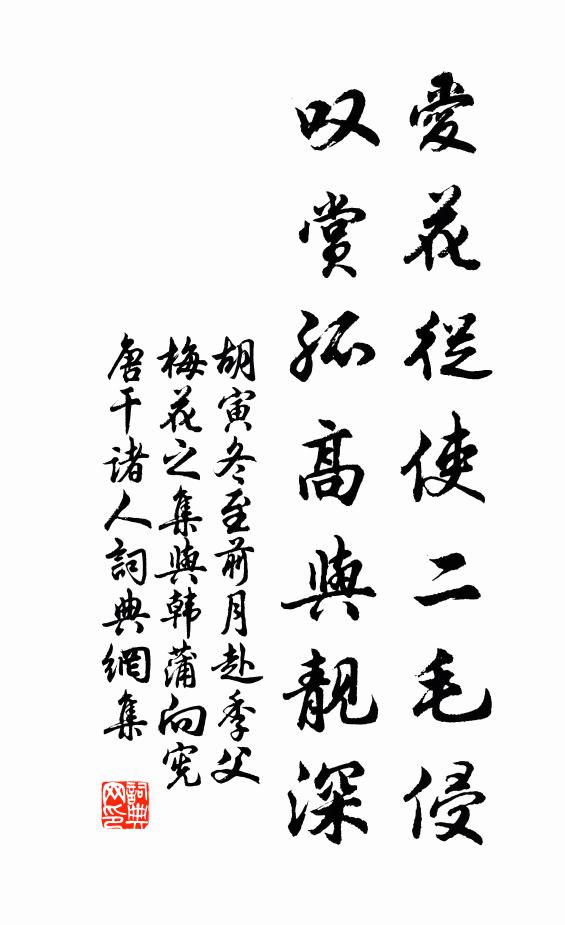 愛花從使二毛侵
叹赏孤高與靓深
胡寅冬至前月赴季父
梅花之集與韩蒲向宪
唐干诸人詞典網集
詞典
网印